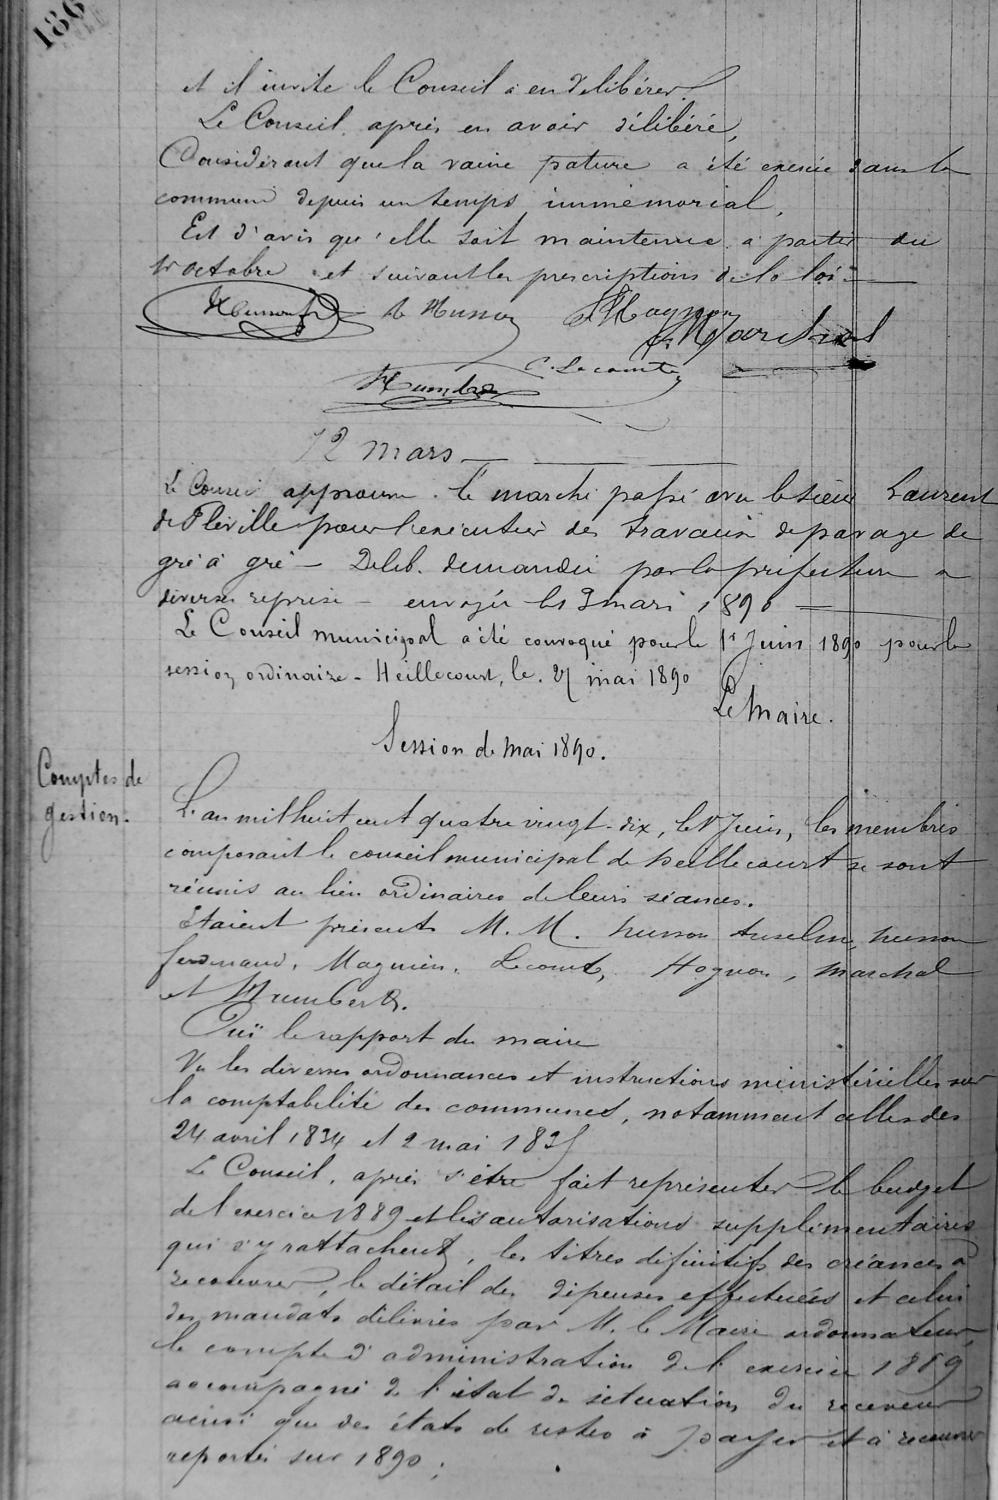 186
et il invite le Conseil à en délibérer.
Le Conseil, après en avoir délibéré,
Considérant que la vaine pature a été exercée dans la
commune depuis un temps immémorial,
Est d'avis qu'elle soit maintenue à partir du
1er octobre et suivant les prescriptions de la loi
Husson fd A Husson Magnien Marchal
C. Lecomte
Humbert
12 mars
Le Conseil approuve le marché passé avec le sieur Laurent
de Fléville pour l'exécution des travaux de pavage de
gré à gré - Délib. demandée par la préfecture a
diverses reprises - envoyée le 9 mars 1890
Le Conseil municipal a été convoqué pour le 1r Juin 1890 pour la
session ordinaire - Heillecourt, le 27 mai 1890
Le Maire.
Session de Mai 1890.
Comptes de
gestion.
L'an mil huit cent quatre vingt-dix, le 1r Juin, les membres
composant le conseil municipal de heillecourt se sont
réunis au lieu ordinaires de leurs séances.
Etaient présents M. M. husson Anselme, husson
ferdinand, Magnien, Lecomte, Hognon, Marchal
et Humbert.
Ouï le rapport du maire
Vu les diverses ordonnances et instructions ministérielles sur
la comptabilité des communes, notamment celles des
24 avril 1834 et 2 mai 1835
Le Conseil, après s'être fait représenter le budget
de l'exercice 1889 et les autorisations supplémentaires
qui s'y rattachent, les titres définitifs des créances à
recouvrer, le détail des dépenses effectuées et celui
des mandats délivrés par M. le Maire ordonnateur,
le compte d'administration de l'exercice 1889
accompagné de l'état de situation du receveur
ainsi que des états de restes à payer et à recouvrer
reportés sur 1890 ;